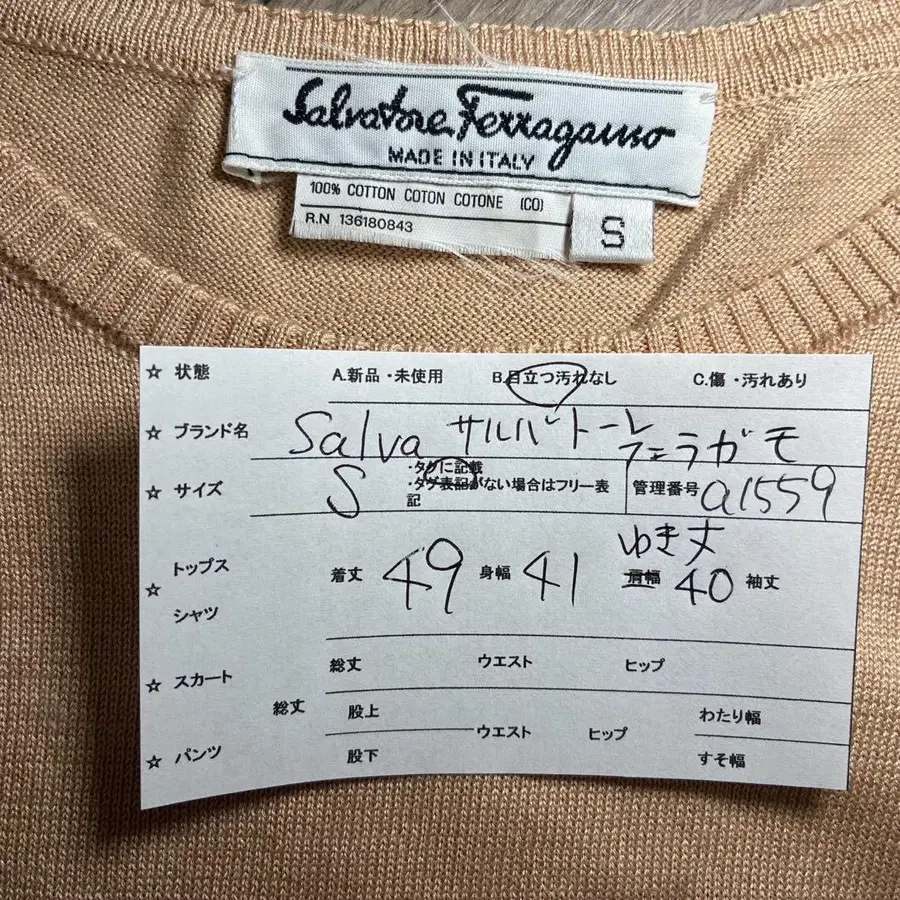 Salvatore Ferragamo
MADE IN ITALY
100% COTTON COTON COTONE (CO)
R.N 136180843
S
☆ 状態 A.新品・未使用 B.目立つ汚れなし C.傷・汚れあり
☆ ブランド名 Salva サルバトーレ
フェラガモ
☆ サイズ S ・タグに記載
・タグ表記がない場合はフリー表
記
管理番号 a1559
ゆき丈
☆ トップス
シャツ
着丈 49 身幅 41 肩幅 40 袖丈
☆ スカート 総丈 ウエスト ヒップ
☆ パンツ 総丈 股上 ウエスト ヒップ わたり幅
股下 すそ幅